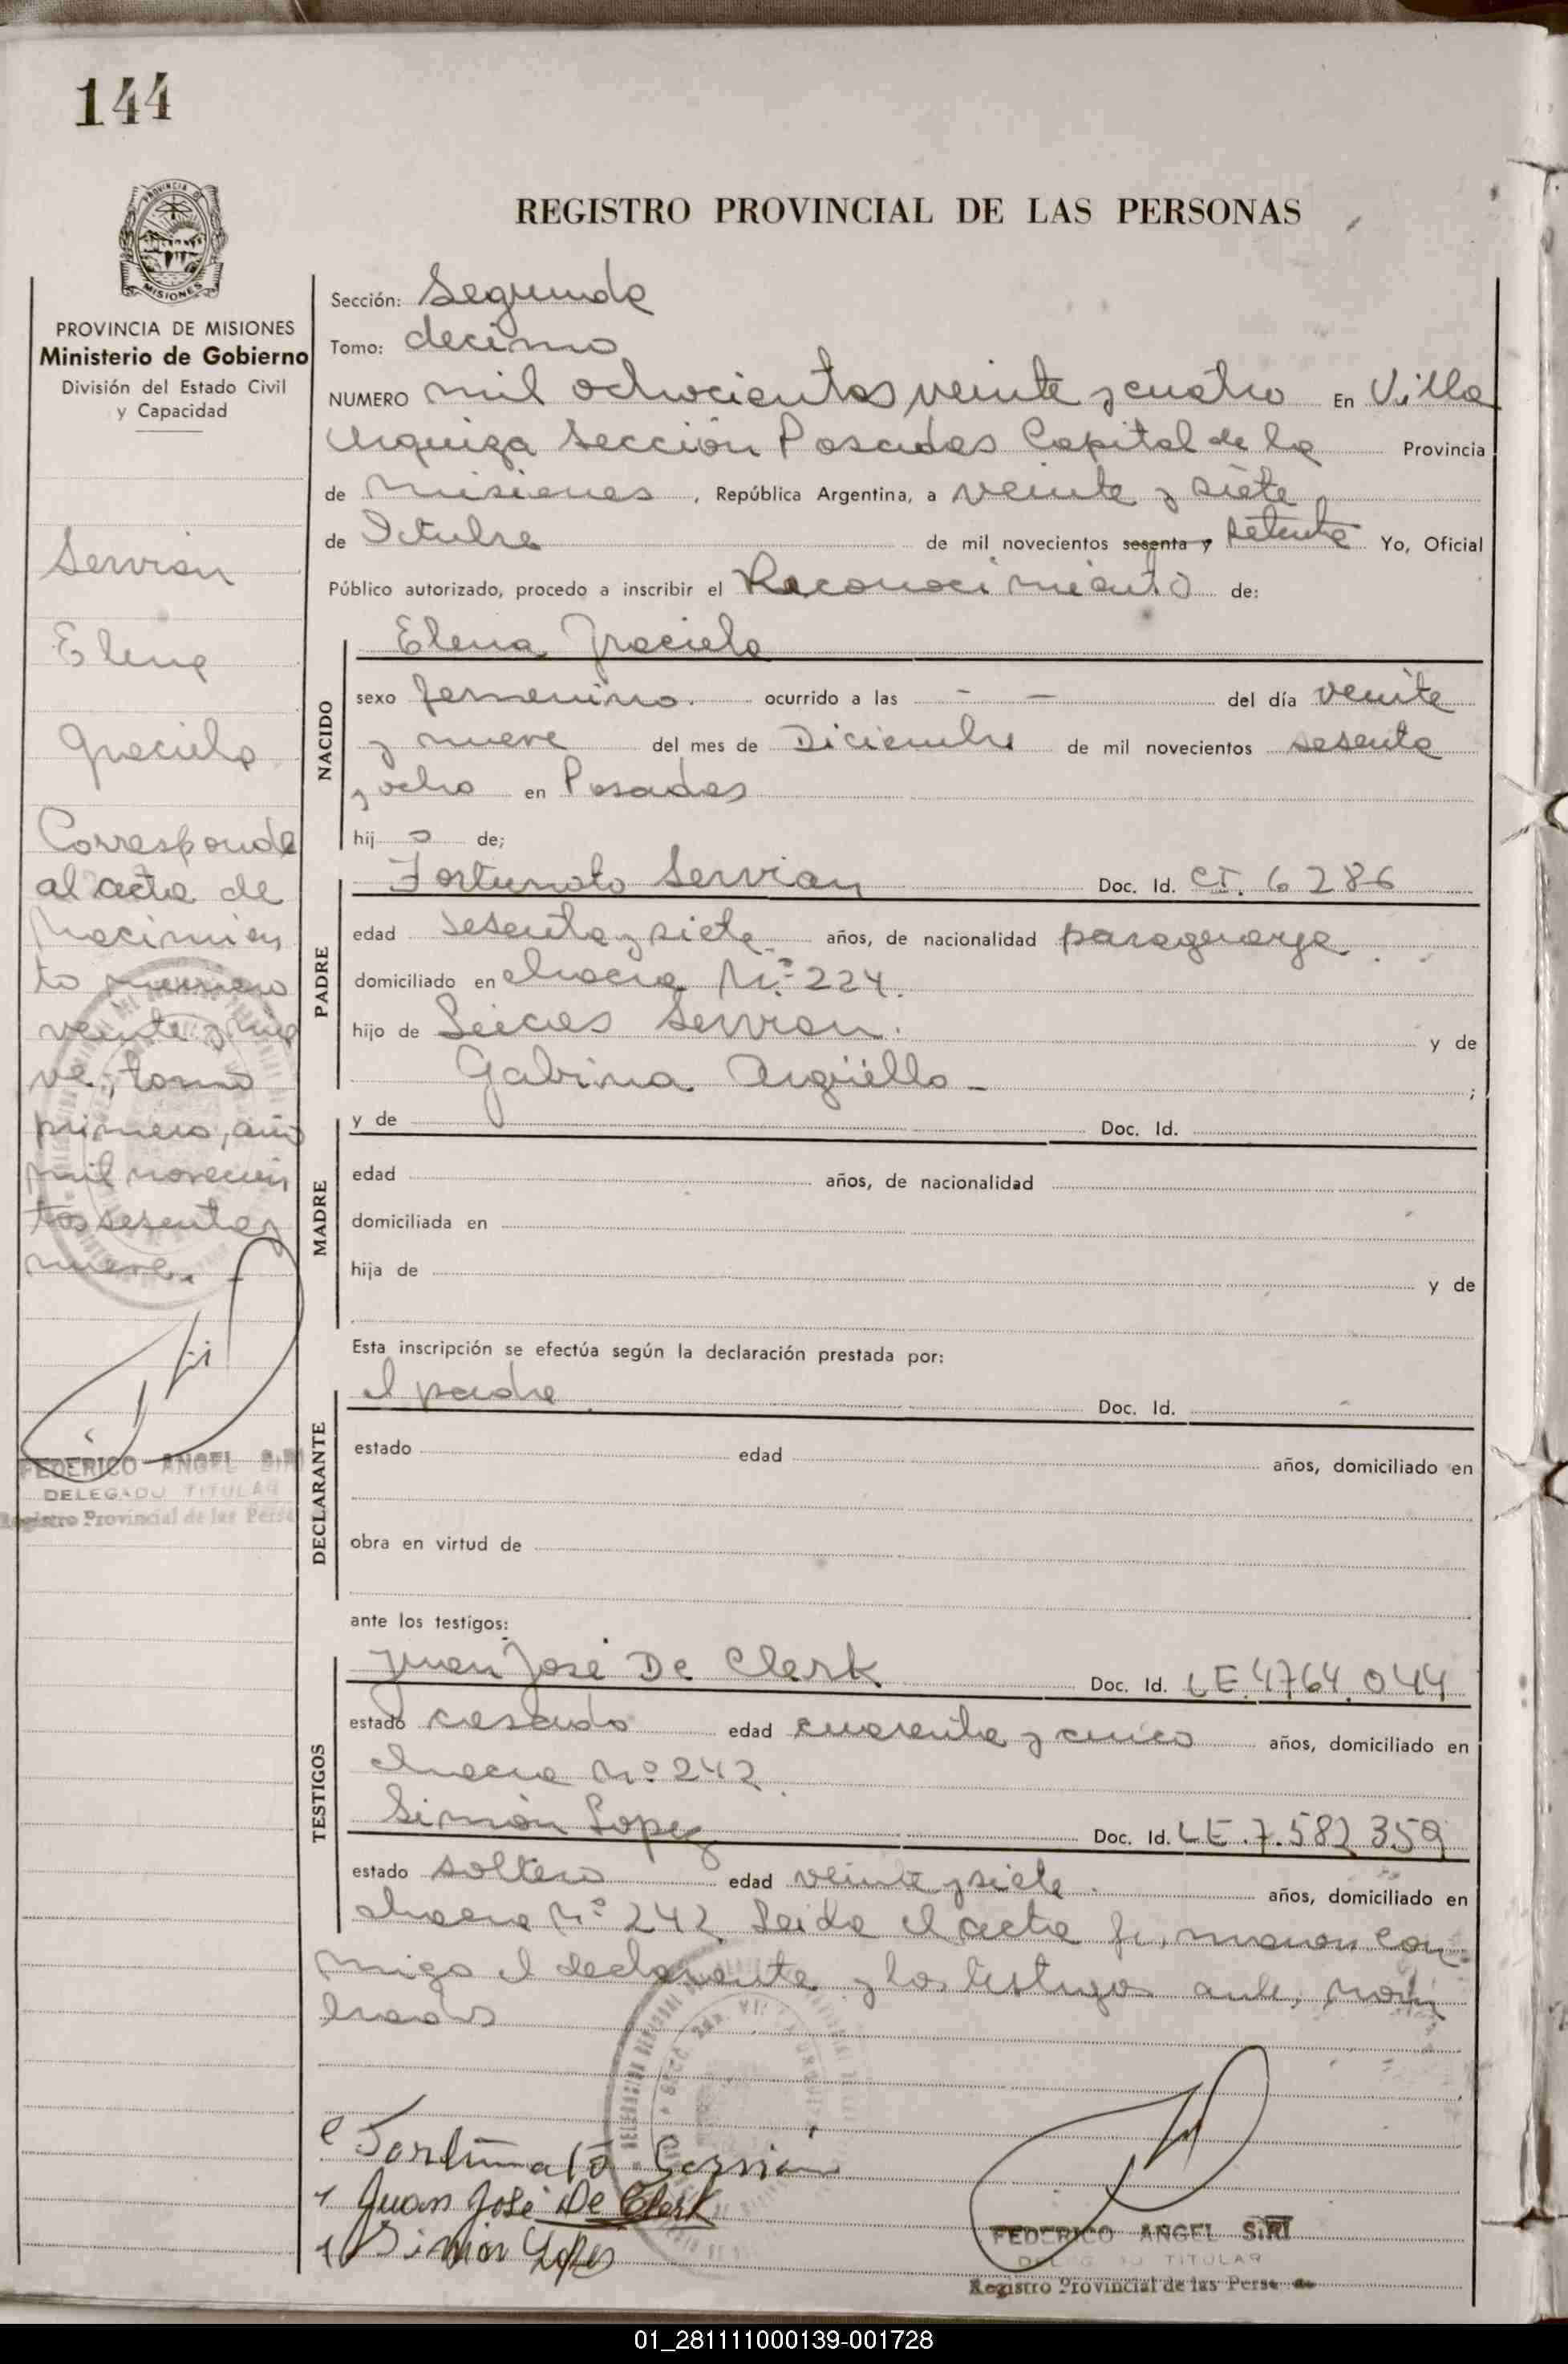 144
PROVINCIA DE
MISIONES
PROVINCIA DE MISIONES
Ministerio de Gobierno
División del Estado Civil
y Capacidad
Servian
Elena
Graciela
Corresponde
al acta de
Nacimien
to numero
veinte y nue
ve, tomo
primero, año
mil novecien
tos sesenta y
nueve.
FEDERICO ANGEL SIRI
DELEGADO TITULAR
Registro Provincial de las Perso
REGISTRO PROVINCIAL DE LAS PERSONAS
Sección: Segunda
Tomo: decimo
NUMERO mil ochocientos veinte y cuatro En Villa
Urquiza Sección Posadas Capital de la Provincia
de Misiones, República Argentina, a veinte y siete
de Octubre de mil novecientos sesenta y setenta Yo, Oficial
Público autorizado, procedo a inscribir el Reconocimiento de:
NACIDO
Elena Graciela
sexo femenino. ocurrido a las - - del día veinte
y nueve del mes de Diciembre de mil novecientos sesenta
y ocho en Posadas
hij a de;
PADRE
Fortunato Servian Doc. Id. CI. 6286
edad sesenta y siete años, de nacionalidad paraguaya.
domiciliado en chacra Nº 224.
hijo de Servian. y de
Gabina Argüello - ;
MADRE
y de Doc. Id.
edad años, de nacionalidad
domiciliada en
hija de y de
Esta inscripción se efectúa según la declaración prestada por:
DECLARANTE
el padre Doc. Id.
estado edad años, domiciliado en
obra en virtud de
ante los testigos:
TESTIGOS
Juan José De Clerk Doc. Id. LE.4764.044
estado casado edad cuarenta y cinco años, domiciliado en
chacra Nº 242
Simón Lopez Doc. Id. LE.7.582 359
estado soltero edad veinte y siete. años, domiciliado en
chacra Nº 242. Leida el acta firmaron con
migo el declarante y los testigos ante, nom
brados
Fortunato Servian
Juan José De Clerk
Simon Lopez
FEDERICO ANGEL SIRI
TITULAR
Registro Provincial de las Perso
01_281111000139-001728